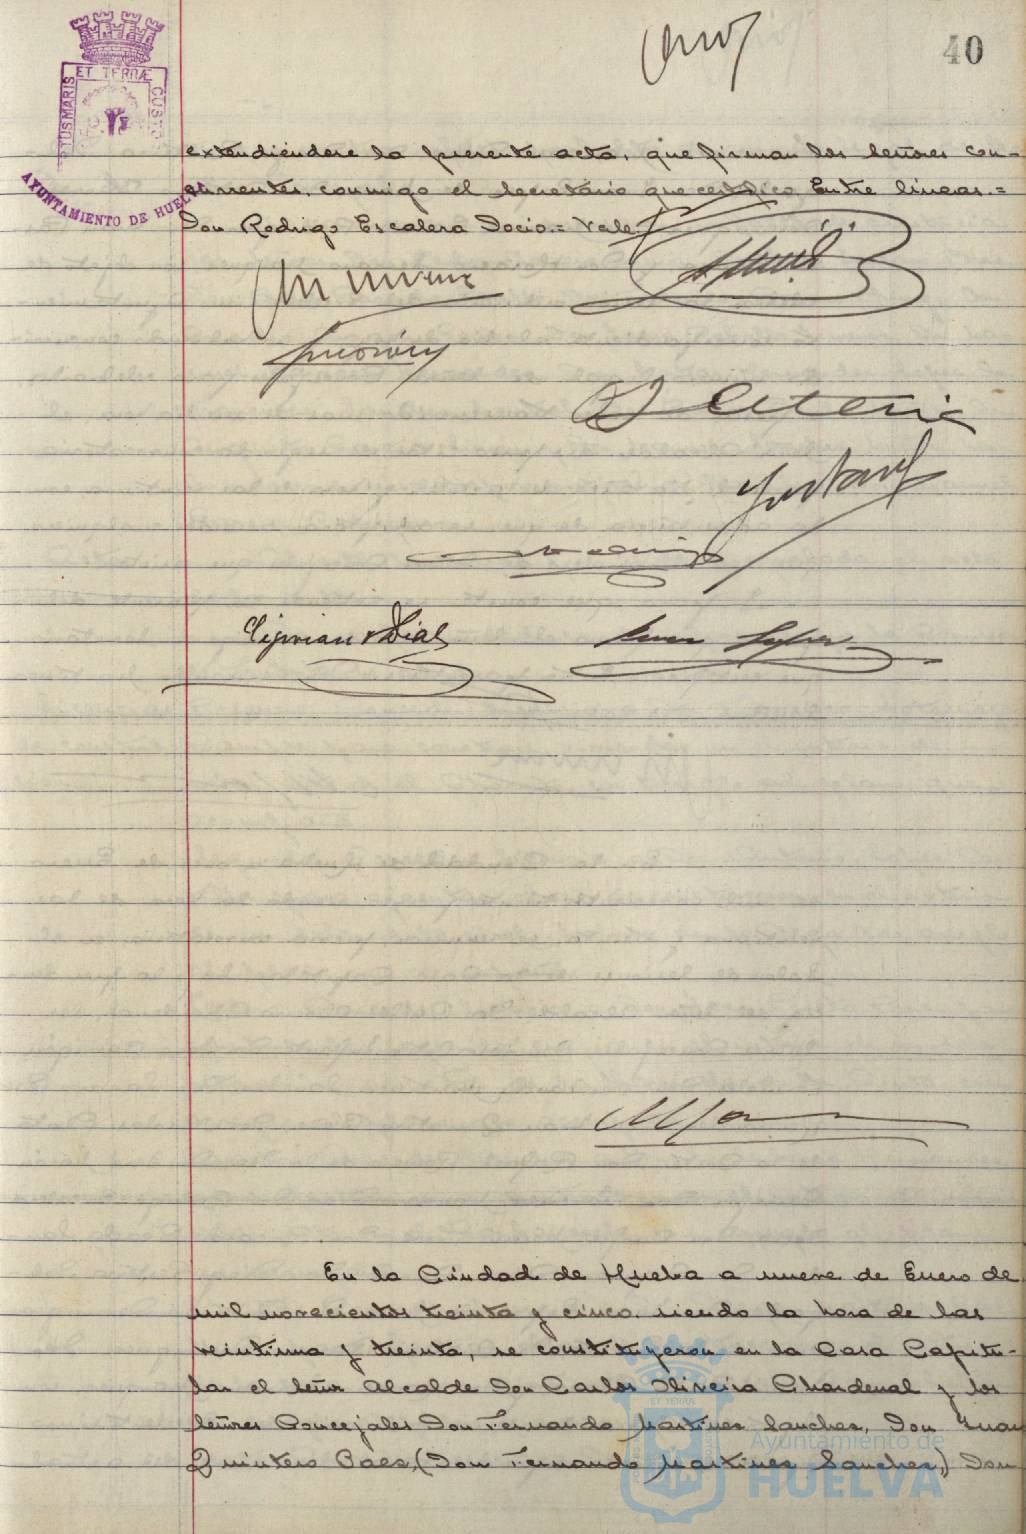 40
ET TERRÆ
TUS MARIS
CUSTO
AYUNTAMIENTO DE HUELVA
extendiéndose la presente acta, que firman los señores con-
currentes, conmigo el Secretario que certifico. Entre líneas.=
Don Rodrigo Escalera Docio.= Vale
Ciprian Dial
En la Ciudad de Huelva a nueve de Enero de
mil novecientos treinta y cinco, siendo la hora de las
veintiuna y treinta, se constituyeron en la Casa Capitu-
lar el Señor Alcalde Don Carlos Oliveira Chardenal y los
Señores Concejales Don Fernando Martines Sanches, Don Juan
Quintero Baes, (Don Fernando Martines Sanches,) Don
ET TERRA
Ayuntamiento de
HUELVA